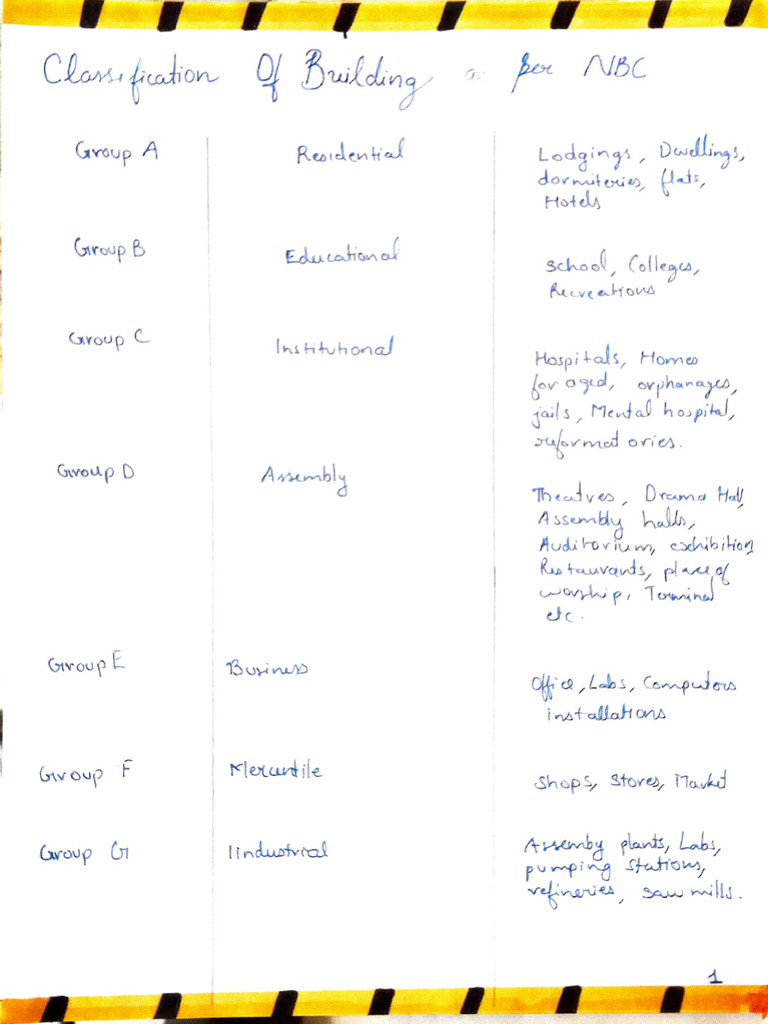 Classification Of Building as per NBC
Group A Residential Lodgings, Dwellings,
dormiteries, flats,
Hotels
Group B Educational School, Colleges,
Recreations
Group C Institutional Hospitals, Homes
for aged, orphanages,
jails, Mental hospital,
reformatories.
Group D Assembly Theatres, Drama Hall,
Assembly halls,
Auditorium, exhibition,
Restaurants, place of
worship, Terminal
etc.
Group E Business Office, Labs, Computers
installations
Group F Mercantile Shops, Stores, Market
Group G Iindustrial Assemby plants, Labs,
pumping stations,
refineries, saw mills.
1